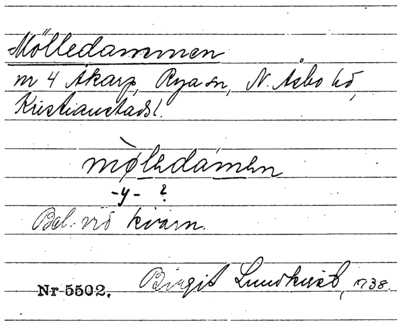 Mölledammen
nr 4 Åkarp, Rya sn, N. Åsbo hd,
Kristianstads l.
møledamen
-y- ?
Bel. vid kvarn.
Nr 5502. Birgit Lundkvist, 1738.